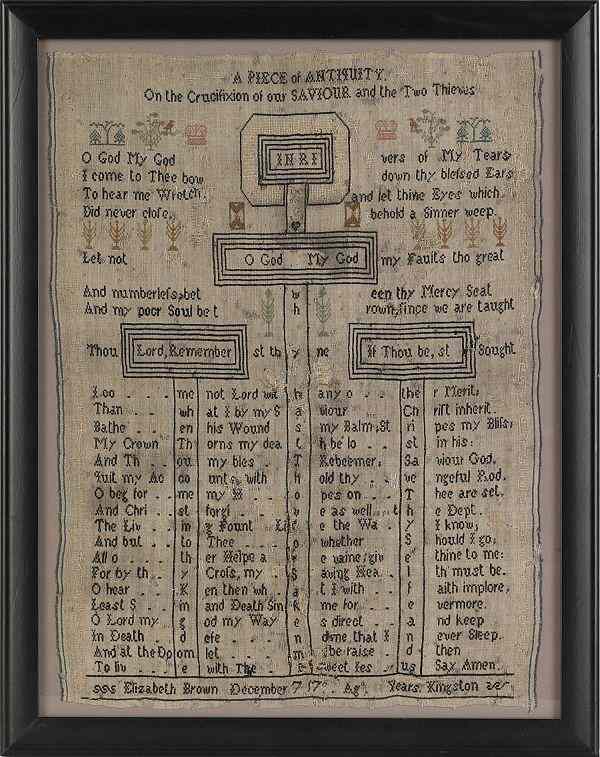 A PIECE of ANTIQUITY.
On the Crucifixion of our SAVIOUR and the Two Thieves
INRI
O God My God vers of My Tears
I come to Thee bow down thy blessed Ears
To hear me Wretch. and let thine Eyes which
Did never close, behold a Sinner weep.
Let not O God My God my Faults tho great
And numberless, bet w een thy Mercy Seat
And my poor Soul be t h rown, since we are taught
Thou Lord, Remember st th y ne If Thou be, st Sought
I co . . . me not Lord wit h any o . . . the r Merit;
Than . . wh at I by my S a viour . . Ch rist inherit.
Bathe . . en his Wound s my Balm, St ri pes my Bliss;
My Crown Th orns my dea t h be lo . . st in his:
And Th . . ou my bles . T Redeemer; Sa viour God,
Quit my Ac co unt . with h old thy . . ve ngeful Rod.
O beg for . . me my H . . o pes on . . T hee are set.
And Chri . st forgi . . v e as well . t h e Dept.
The Liv . . in g Fount Lif e the Wa . Y I know,
And but . . to Thee . . o whether . S hould I go;
All o . . . th er Helpe a r e vaine; giv e thine to me:
For by th . . y Cross, my . S aving Hea . l th must be.
O hear . . K en then wh a t I with . f aith implore,
Least S . . in and Death Sin k me for . . e vermore.
O Lord my . g od my Way e s direct . . a nd keep
In Death . d efe . . n dme that I n ever Sleep.
And at the Do om let . . m be raise . d then
To liv . . . e with The . E Sweet Jes y us Say Amen.
Elizabeth Brown December 7 Years, Kingston